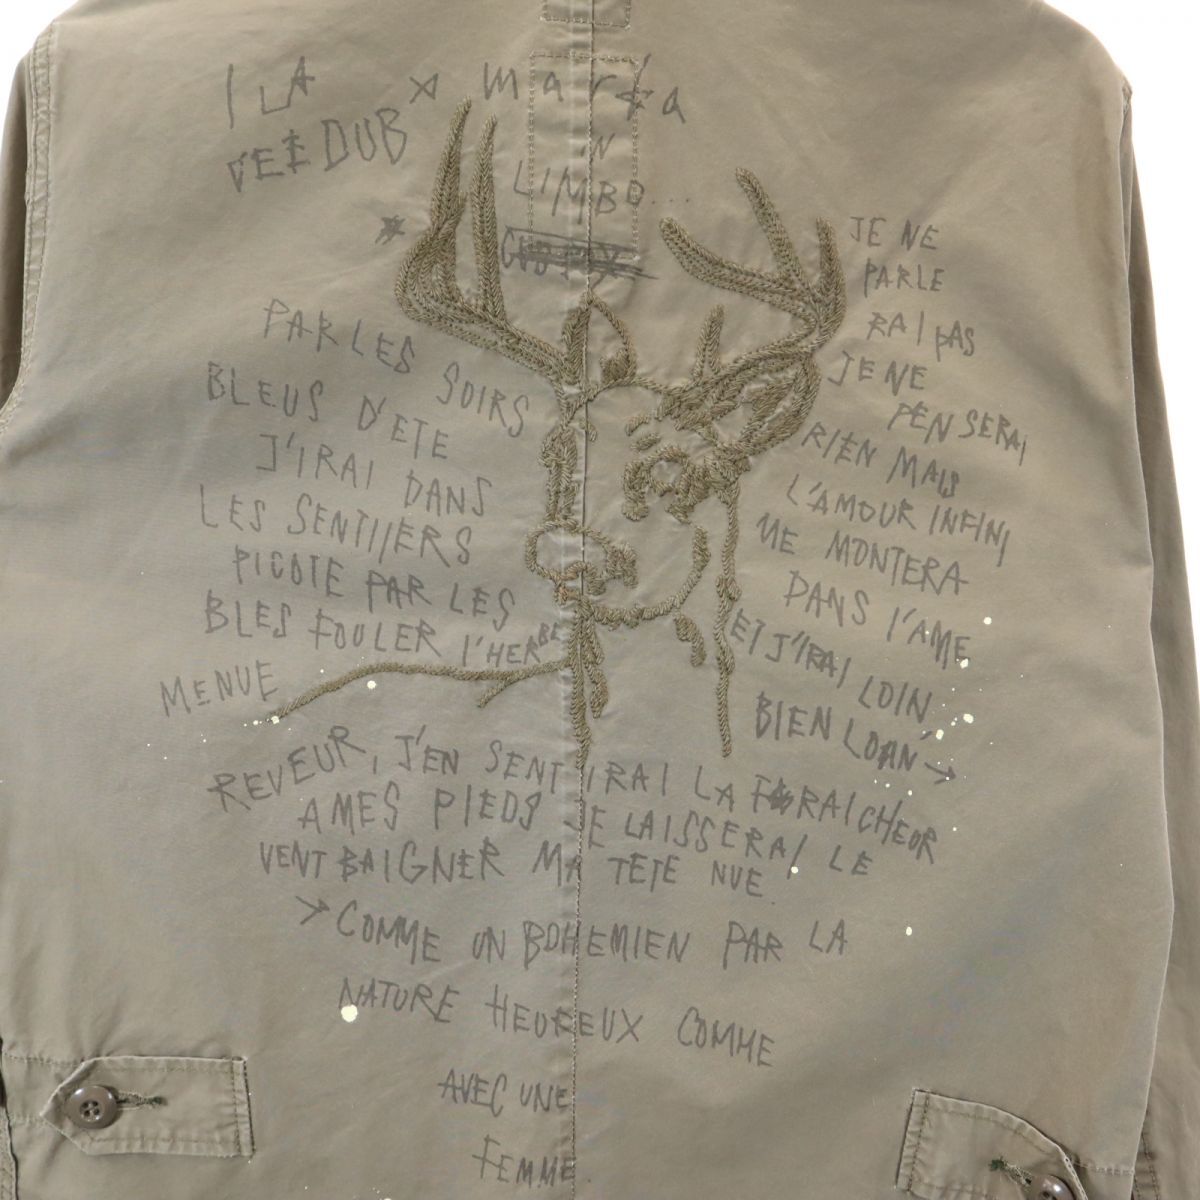 DUB
maria
IN
LIMBO...
PAR LES SOIRS
BLEUS D'ETE
J'IRAI DANS
LES SENTIIERS
PICOTE PAR LES
BLES FOULER l'HERBE
MENUE
REVEUR, J'EN SENTIRAI LA FRAICHEUR
A MES PIEDS JE LAISSERAI LE
VENT BAIGNER MA TETE NUE.
JE NE
PARLE
RAI PAS
JE NE
PENSERAI
RIEN MAIS
L'AMOUR INFINI
ME MONTERA
DANS l'AME
ET J'IRAI LOIN
BIEN LOAN' →
→ COMME UN BOHEMIEN PAR LA
NATURE HEUREUX COMME
AVEC UNE
FEMME.